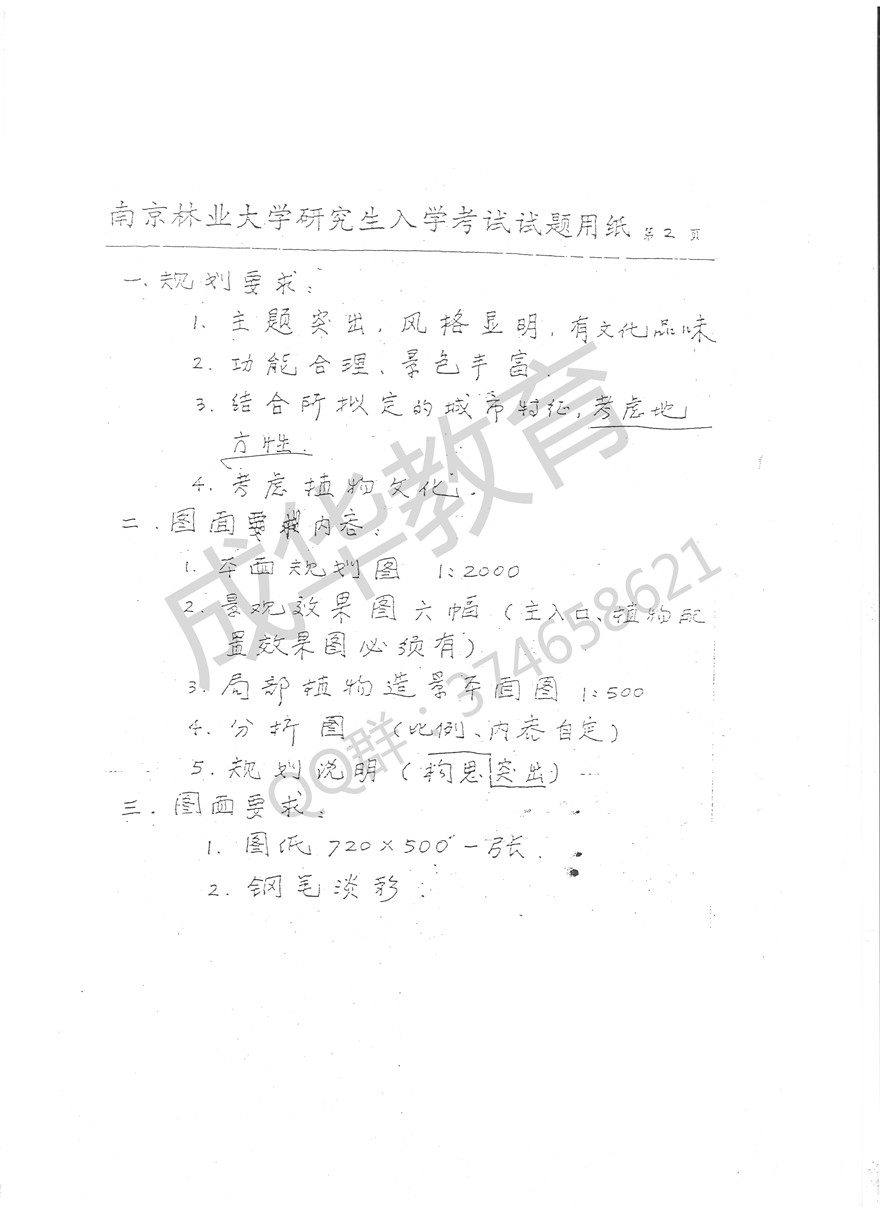 南京林业大学研究生入学考试试题用纸 第2页
一、规划要求：
1. 主题突出，风格显明，有文化品味
2. 功能合理、景色丰富．
3. 结合所拟定的城市特征，考虑地
方性．
4. 考虑植物文化．
二．图面要求内容：
1. 平面规划图 1:2000
2. 景观效果图六幅（主入口、植物配
置效果图必须有）
3. 局部植物造景平面图 1:500
4. 分析图 （比例、内容自定）
5. 规划说明（构思突出）
三．图面要求：
1. 图纸 720×500 一张．
2. 钢笔淡彩．
成华教育
QQ群：374658621